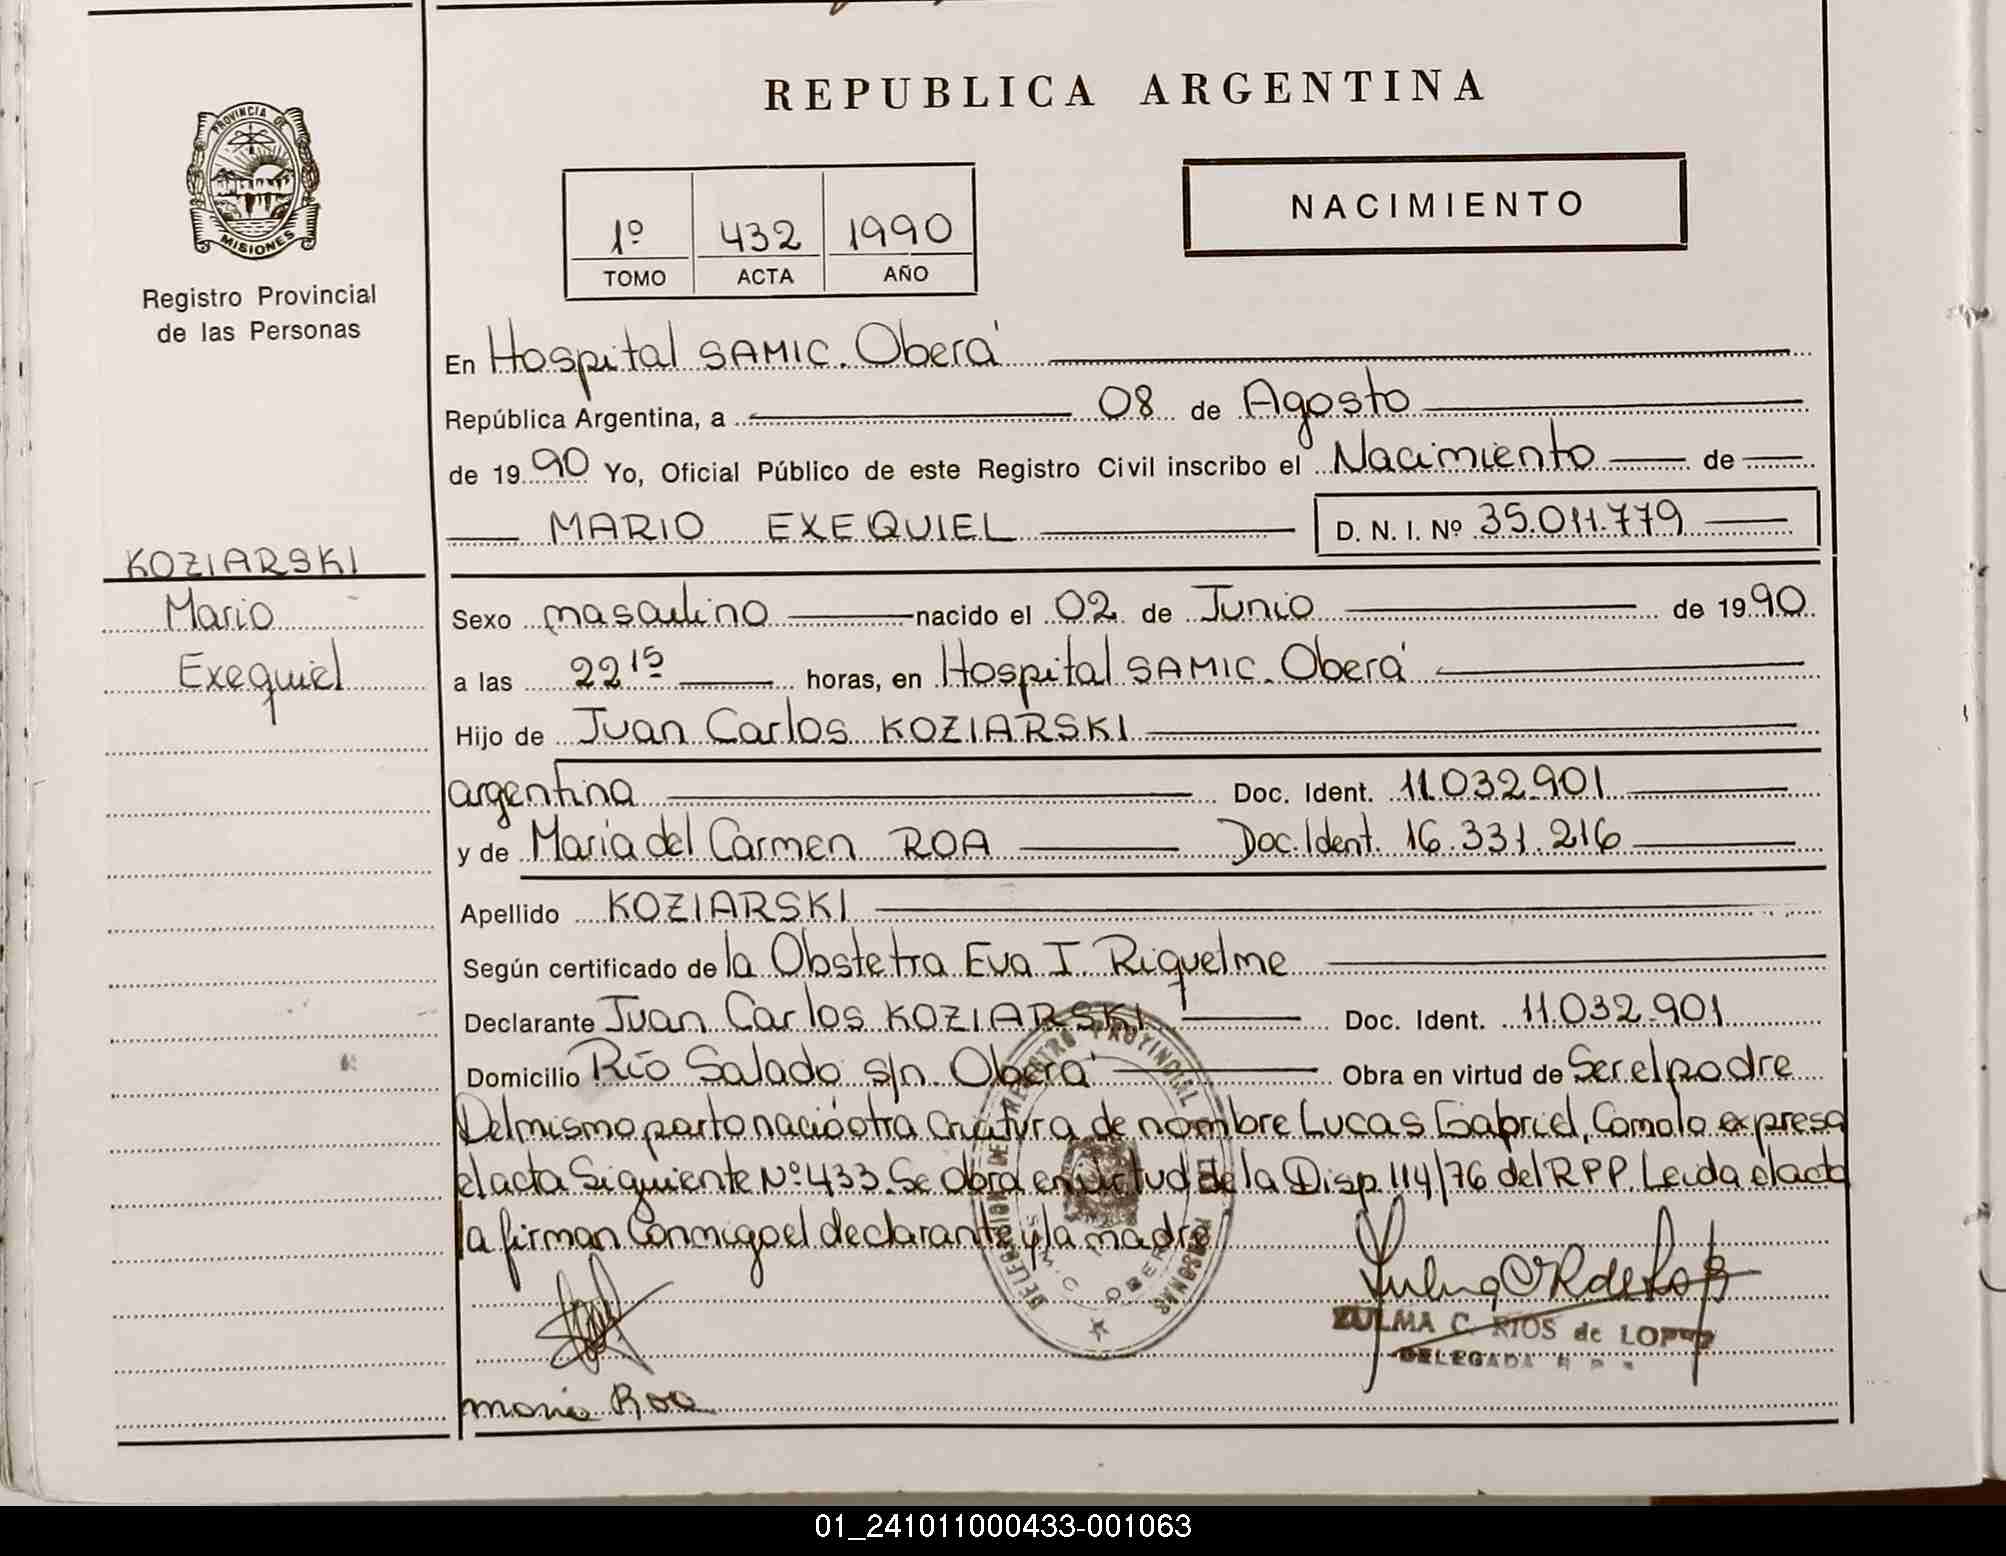 REPUBLICA ARGENTINA
PROVINCIA DE
MISIONES
Registro Provincial
de las Personas
1º 432 1990
TOMO ACTA AÑO
NACIMIENTO
En Hospital SAMIC. Oberá
República Argentina, a 08 de Agosto
de 1990 Yo, Oficial Público de este Registro Civil inscribo el Nacimiento de
MARIO EXEQUIEL D. N. I. Nº 35.011.779
KOZIARSKI
Mario
Exequiel
Sexo masculino nacido el 02 de Junio de 1990
a las 22 15 horas, en Hospital SAMIC. Oberá
Hijo de Juan Carlos KOZIARSKI
argentina Doc. Ident. 11.032.901
y de María del Carmen ROA Doc. Ident. 16.331.216
Apellido KOZIARSKI
Según certificado de la Obstetra Eva I. Riquelme
Declarante Juan Carlos KOZIARSKI Doc. Ident. 11.032.901
Domicilio Río Salado s/n. Oberá Obra en virtud de Ser el padre
Del mismo parto nació otra criatura de nombre Lucas Gabriel, Como lo expresa
el acta Siguiente Nº 433. Se obra en virtud de la Disp. 114/76 del R.P.P. Leida el acta
la firman Conmigo el declarante y la madre
DELEGACION DEL REGISTRO PROVINCIAL PERSONAS
ZULMA C. RIOS de LOPEZ
DELEGADA
Maria Roa
01_241011000433-001063